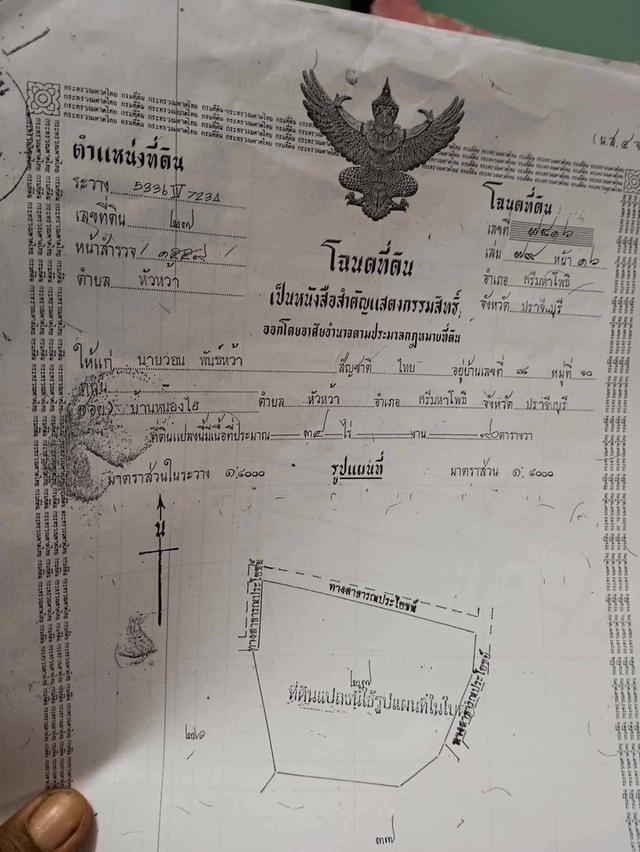 (น.ส.๔จ
กระทรวงมหาดไทย กรมที่ดิน กระทรวงมหาดไทย กรมที่ดิน
ตำแหน่งที่ดิน
ระวาง 5336 IV 7234
เลขที่ดิน ๒๗
หน้าสำรวจ
ตำบล หัวหว้า
โฉนดที่ดิน
เลขที่ ๗๘๑๖
เล่ม ๗๙ หน้า ๑๖
อำเภอ ศรีมหาโพธิ
จังหวัด ปราจีนบุรี
โฉนดที่ดิน
เป็นหนังสือสำคัญแสดงกรรมสิทธิ์
ออกโดยอาศัยอำนาจตามประมวลกฎหมายที่ดิน
ให้แก่ นายวอน พันธ์หว้า สัญชาติ ไทย อยู่บ้านเลขที่ ๗๙ หมู่ที่ ๑๐
ถนน
(ซอย) บ้านหนองไฮ ตำบล หัวหว้า อำเภอ ศรีมหาโพธิ จังหวัด ปราจีนบุรี
ที่ดินแปลงนี้มีเนื้อที่ประมาณ ๓๔ ไร่ งาน ๙๐ ตารางวา
มาตราส่วนในระวาง ๑:๔๐๐๐ รูปแผนที่ มาตราส่วน ๑:๔๐๐๐
น
ทางสาธารณประโยชน์
ทางสาธารณประโยชน์
ทางสาธารณประโยชน์
๒๗
ที่ดินแปลงนี้ใช้รูปแผนที่ในใบ
๒๖
๓๗